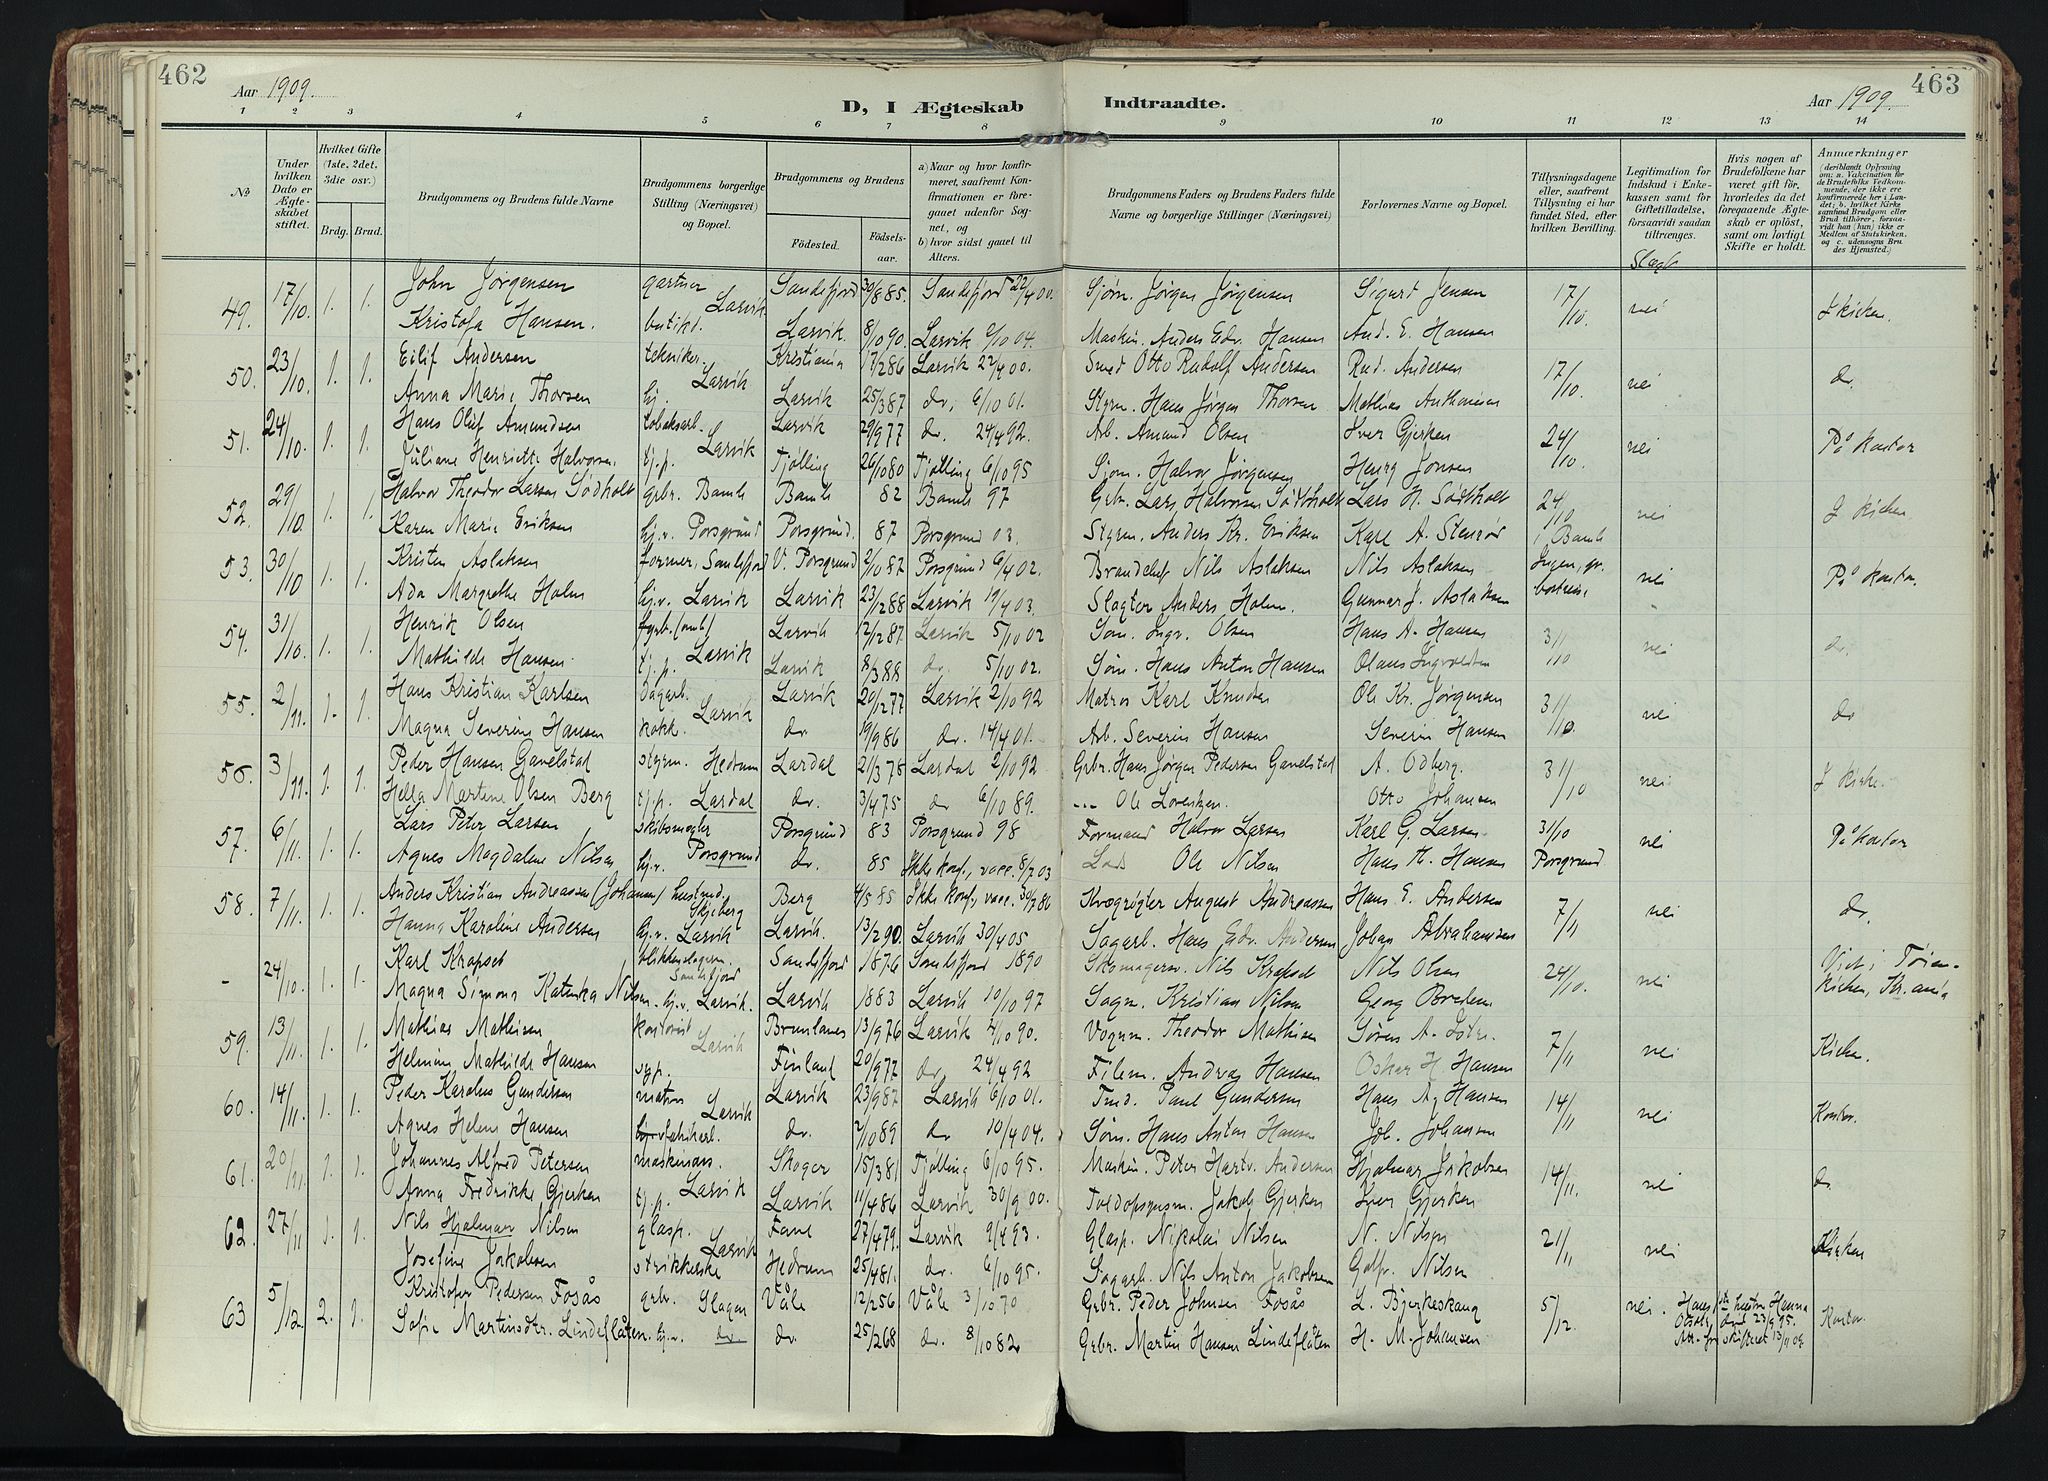 462
Aar 1909.
D, I Ægteskab Indtraadte.
463
Aar 1909.
1 2 3 4 5 6 7 8 9 10 11 12 13 14
No
Under hvilken Dato er Ægteskabet stiftet.
Hvilket Gifte (1ste, 2det, 3die osv.)
Brdg. Brud.
Brudgommens og Brudens fulde Navne
Brudgommens borgerlige Stilling (Næringsvei) og Bopæl.
Brudgommens og Brudens
Fødested. Fødselsaar.
a) Naar og hvor konfirmeret, saafremt Konfirmationen er foregaaet udenfor Sognet, og
b) hvor sidst gaaet til Alters.
Brudgommens Faders og Brudens Faders fulde Navne og borgerlige Stillinger (Næringsvei)
Forlovernes Navne og Bopæl.
Tillysningsdagene eller, saafremt Tillysning ei har fundet Sted, efter hvilken Bevilling.
Legitimation for Indskud i Enkekassen samt for Giftetilladelse, forsaavidt saadan tiltrænges.
Hvis nogen af Brudefolkene har været gift før, hvorledes da det foregaaende Ægteskab er opløst, samt om lovligt Skifte er holdt.
Anmærkninger
(deriblandt Oplysning om: a. Vaccination for de Brudefolks Vedkommende, der ikke ere konfirmerede her i Landet; b. hvilket Kirkesamfund Brudgom eller Brud tilhører, forsaavidt han (hun) ikke er Medlem af Statskirken, og c. udensogns Brudes Hjemsted.)
Slægt
49. 17/10. 1. 1. John Jørgensen gartner Larvik Sandefjord 30/8 85. Sandefjord 22/4 00. Sjøm. Jørgen Jørgensen Sigurd Jensen 17/10. nei I kirken.
Kristofa Hansen. butikd. Larvik. 8/10 90. Larvik 2/10 04. Maskin. Anders Edv. Hansen And. E. Hansen
50. 23/10. 1. 1. Eilif Andersen tekniker. Larvik Kristiania 17/2 86 Larvik 22/4 00. Smed Otto Rudolf Andersen Rud. Andersen 17/10. nei do.
Anna Marie Thorsen hj. Larvik 25/3 87 do, 6/10 01. Styrm. Hans Jørgen Thorsen Mathias Anthonisen
51. 24/10. 1. 1. Hans Oluf Amundsen tobaksarb. Larvik Larvik 29/9 77 do. 24/4 92. Arb. Amund Olsen Iver Gjerken 24/10. nei På kontor
Juliane Henriette Halvorsen. tj.p. Tjølling 26/10 80 Tjølling 6/10 95 Sjøm. Halvor Jørgensen Henry Jonsen
52. 29/10. 1. 1. Halvor Theodor Larsen Sødholt grbr. Bamle Bamle 82 Bamle 97 Grbr. Lars Halvorsen Sødtholt Lars H. Sødtholt 24/10 i Bamle nei I kirken
Karen Marie Eriksen hj.v. Porsgrund Porsgrund. 87 Porsgrund 03. Styrm. Anders Kr. Eriksen Karl A. Stenrød
53. 30/10 1. 1. Kristen Aslaksen former, Sandefjord V. Porsgrund 2/10 87 Porsgrund 6/4 02. Brandchef Nils Aslaksen Nils Aslaksen Ingen, gr. bortreise nei På kontor.
Ada Margrethe Holm hj.v. Larvik Larvik 23/12 88 Larvik 19/4 03. Slagter Anders Holm. Gunnar J. Aslaksen
54. 31/10. 1. 1. Henrik Olsen fyrb. (omb) Larvik Larvik 12/12 87 Larvik 5/10 02 Søm. Ingv. Olsen Hans A. Hansen 31/10 nei do.
Mathilde Hansen. tj.p. Larvik 8/3 88 do. 5/10 02. Søm. Hans Anton Hansen Olaus Ingvoldsen
55. 2/11. 1. 1. Hans Kristian Karlsen dagarb. Larvik Larvik 20/12 77 Larvik 2/10 92 Matros Karl Knudsen Ole Kr. Jørgensen 31/10. nei do
Magna Severine Hansen kokk. do 19/9 86 do. 14/4 01. Arb. Severin Hansen Severin Hansen
56. 3/11. 1. 1. Peder Hansen Gavelstad styrm. Hedrum Lardal 21/3 78 Lardal 2/10 92 Grbr. Hans Jørgen Pedersen Gavelstad A. Odberg. 31/10 nei I kirke.
Hella Martine Olsen Berg tj.p. Lardal do. 3/4 75 do 6/10 89. --- Ole Lorentzen. Otto Johansen
57. 6/11. 1. 1. Lars Peter Larsen skibsmægler Porsgrund Porsgrund 83 Porsgrund 98 Formand Halvor Larsen Karl G. Larsen 31/10 Porsgrund nei På kontor
Agnes Magdalene Nilsen hj.v. do. 85 Ikke konf., vacc. 8/7 03 Ole Nilsen Hans H. Hansen
58. 7/11. 1. 1. Anders Kristian Andreassen (Johansen) Skjeberg Berg 4/5 85 Ikke konf., vacc. 30/7 86 Kvægrøgter August Andreassen Hans E. Andersen 7/11 nei do.
Hanna Karoline Andersen hj.v. Larvik Larvik. 13/2 90. Larvik 30/4 05 Sagarb. Hans Edv. Andersen Johan Abrahamsen
- 24/10. 1. 1. Karl Krapset blikkenslagerm. Sandefjord Sandefjord 1876 Sandefjord 1890 Skomagersv. Nils Krapset Nils Olsen 24/10. nei Viet i Tøienkirken, Kr.ania
Magna Simona Katinka Nilsen. hj.v. Larvik. Larvik 1883 Larvik 10/10 97 Sagm. Kristian Nilsen Georg Bredem.
59. 13/11. 1. 1. Mathias Mathisen kontorist Larvik Brunlanes 13/9 76 Larvik 2/10 90. Vognm. Theodor Mathisen Søren A. Istre. 7/11 nei Kirken.
Helmine Mathilde Hansen syp. Finland 20/9 77 do, 24/4 92 Filem. Andreas Hansen Oskar H. Hansen
60. 14/11. 1. 1. Peder Karolus Gundersen matros Larvik Larvik 23/9 87 Larvik 6/10 01. Tmd. Paul Gundersen Hans Ag Hansen 14/11 nei Kontor.
Agnes Helene Hansen fabrikarb. do. 2/10 89 do 10/4 04. Søm. Hans Anton Hansen Joh. Johansen
61. 20/11. 1. 1. Johannes Alfred Petersen maskinass. Larvik Skoger 15/3 81 Tjølling 6/10 95. Maskin. Peter Hartv. Andersen Hjalmar Jakobsen 14/11. nei do.
Anna Fredrikke Gjerken tj.p. Larvik 11/4 86 Larvik 30/9 00. Toldopsynsm. Jakob Gjerken Iver Gjerken
62. 27/11 1. 1. Nils Hjalmar Nilsen glasp. Larvik Fane 27/4 79. Larvik 9/4 93. Glasp. Nikolai Nilsen N. Nilsen 21/11 nei Kirken
Josefine Jakobsen strikkerske Hedrum 25/4 81. do. 6/10 95. Sagarb. Nils Anton Jakobsen Nilsen
63 5/12. 2. 1. Kristofer Pedersen Fosås grbr. Slagen Våle 12/2 56 Våle 3/10 70 Grbr. Peder Johnsen Fosås L. Bjerkeskaug 5/12. nei. Hans 1ste hustru Hanna død 23/9 95. skiftet 13/11 09 Kontor
Sofie Martinsdtr. Lindeflåten. hj.v. do do. 25/2 68 do. 8/10 82 Grbr. Martin Hansen Lindeflåten H. M. Johansen